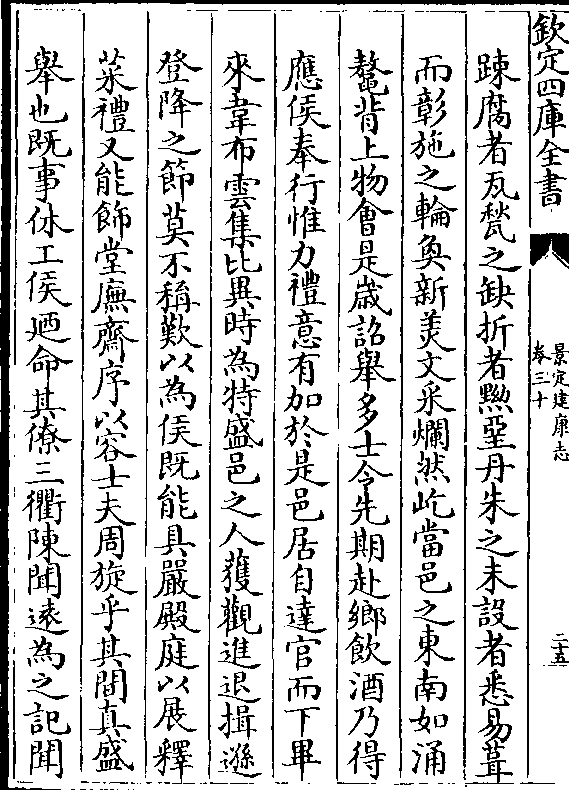 欽定四庫全書
景定建康志
卷三十
二十五
踈腐者瓦甃之缺折者黝堊丹朱之未設者悉易葺
而彰施之輪奐新羙文采爛然屹當邑之東南如涌
鼇背上物會是歳詔舉多士令先期赴鄉飲酒乃得
應侯奉行惟力禮意有加於是邑居自達官而下畢
來韋布雲集比異時為特盛邑之人獲觀進退揖遜
登降之節莫不稱歎以為侯既能具嚴殿庭以展釋
菜禮又能飾堂廡齋序以容士夫周旋乎其間真盛
舉也既事休工侯廼命其僚三衢陳聞遠為之記聞